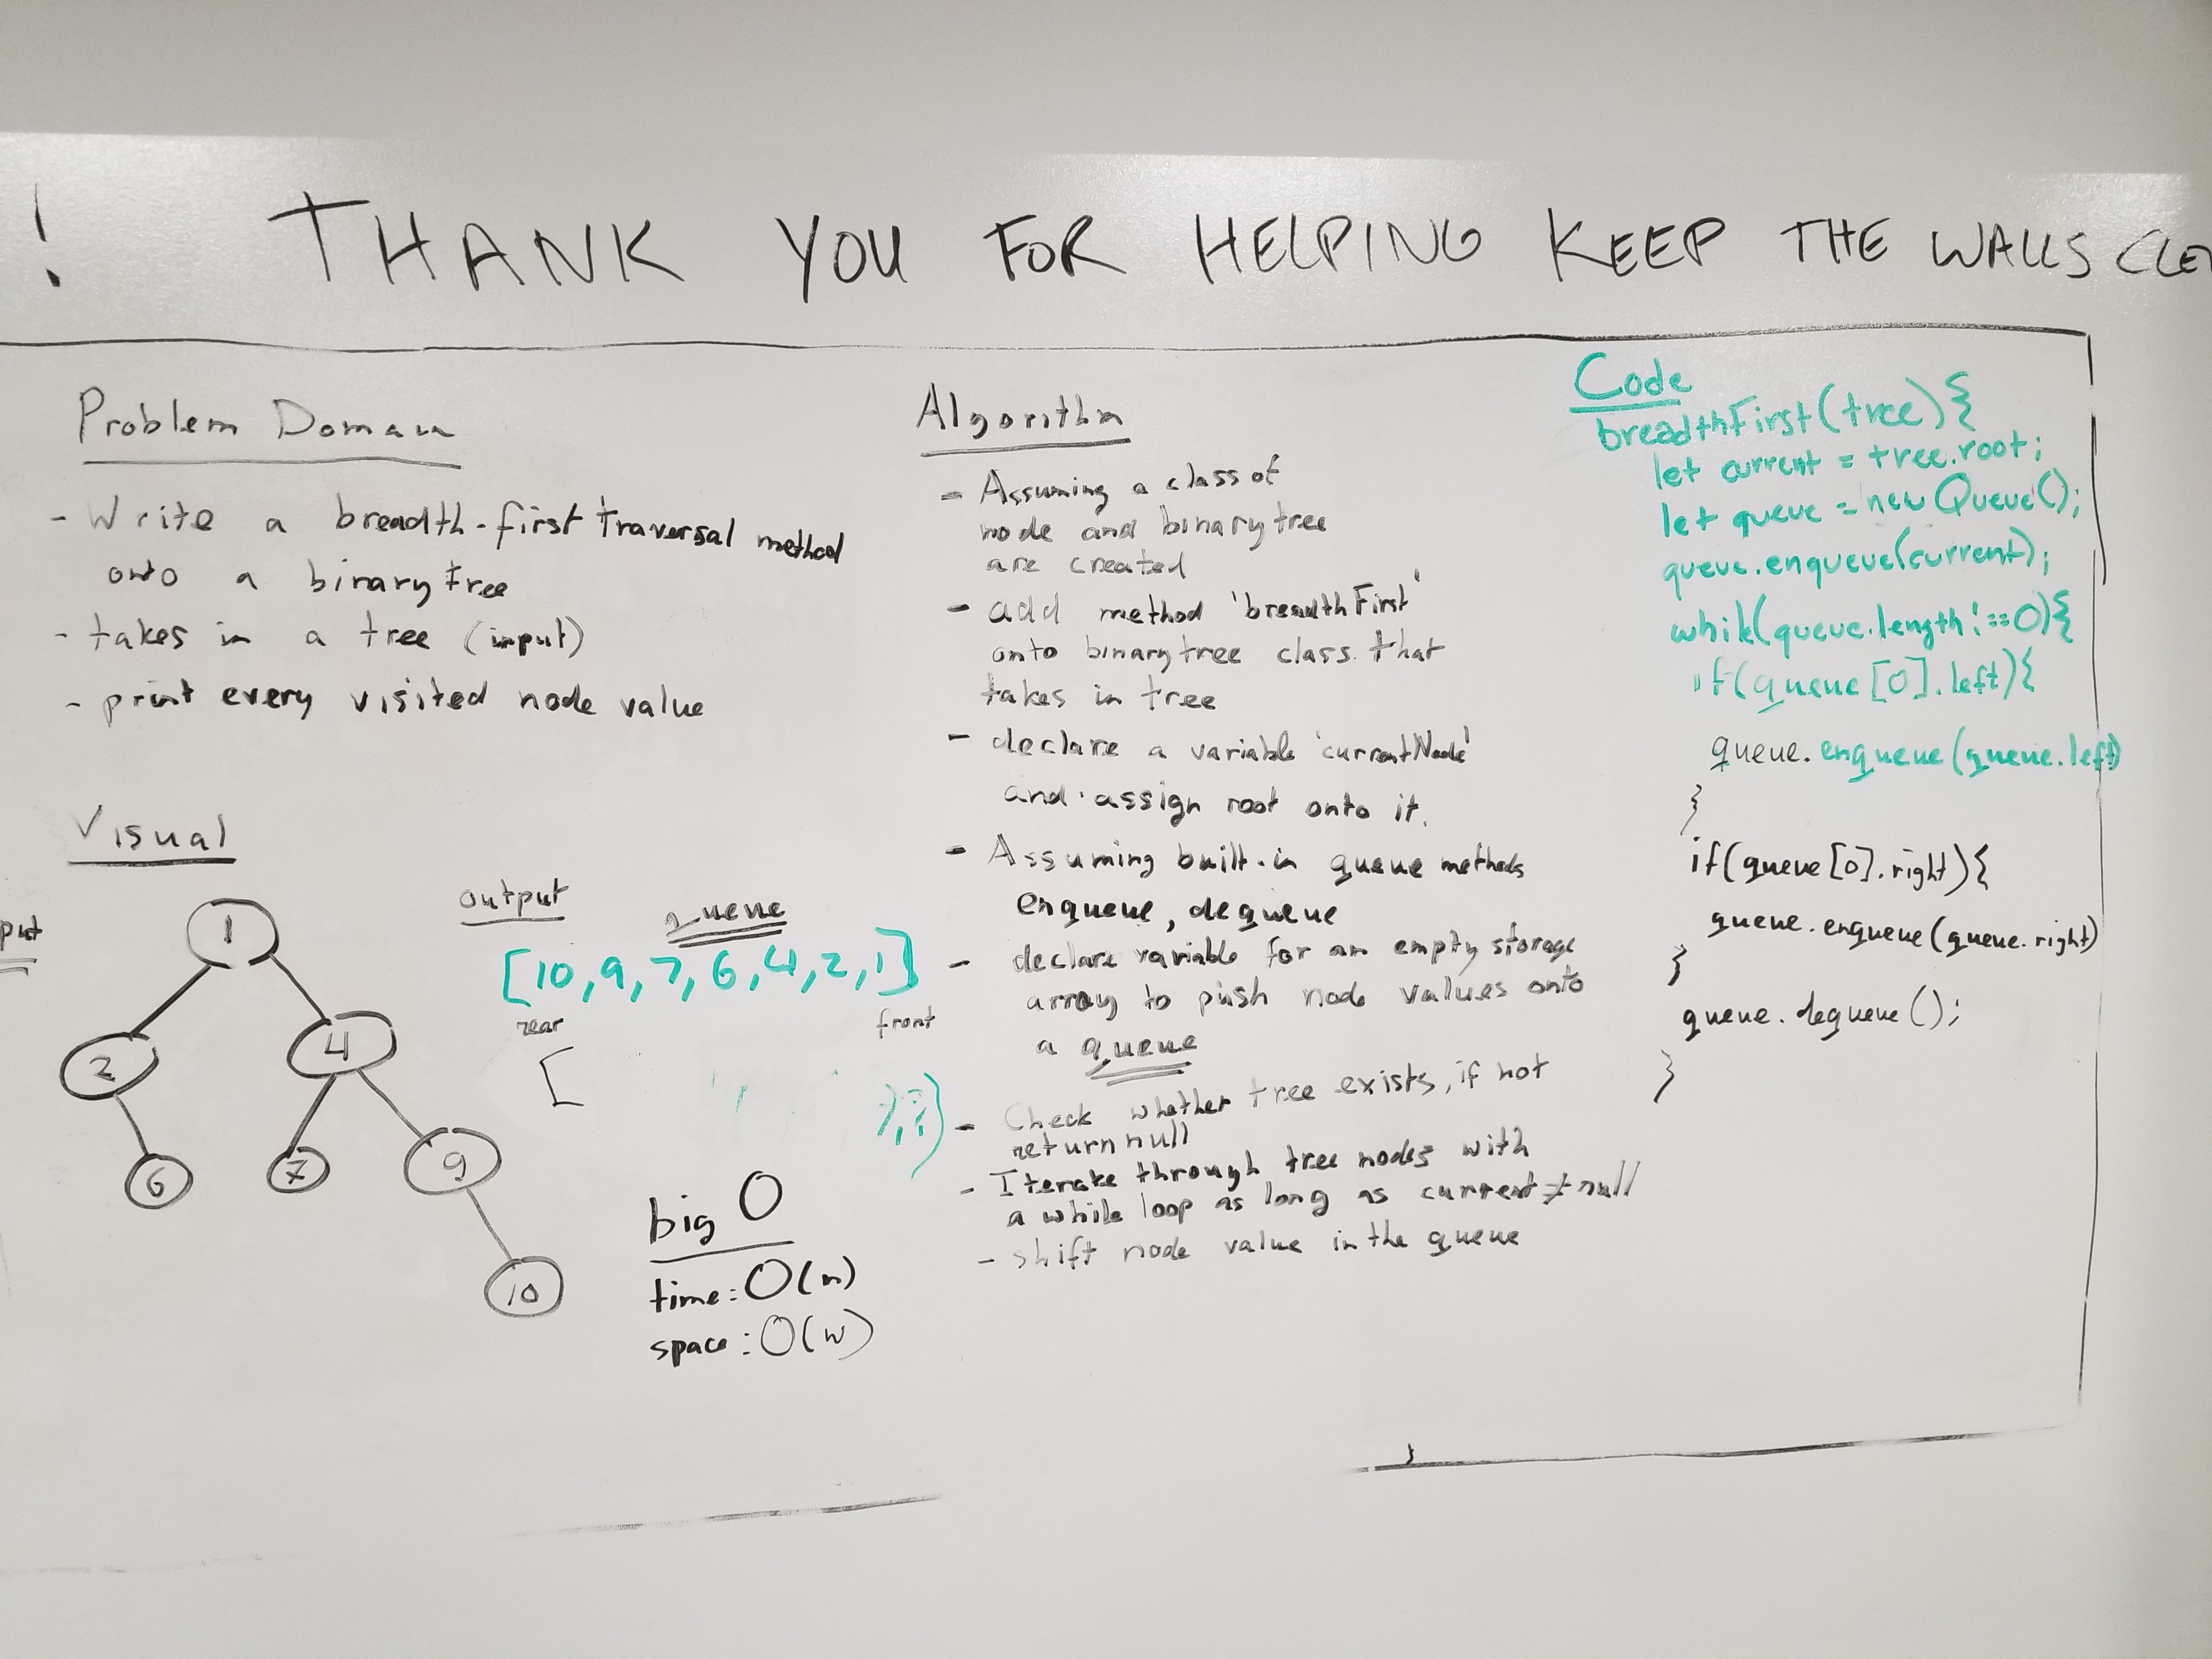 ! THANK YOU FOR HELPING KEEP THE WALLS CLE
Problem Domain
- Write a breadth-first traversal method
onto a binary tree
- takes in a tree (input)
- print every visited node value
Visual
put
1
2
4
6
7
9
10
output
queue
[10, 9, 7, 6, 4, 2, 1]
rear
front
[
big O
time: O(n)
space: O(w)
Algorithm
- Assuming a class of
node and binary tree
are created
- add method 'breadthFirst'
onto binary tree class that
takes in tree
- declare a variable 'currentNode'
and assign root onto it.
- Assuming built-in queue methods
enqueue, dequeue
- declare variable for an empty storage
array to push node values onto
a queue
- Check whether tree exists, if not
return null
- Iterate through tree nodes with
a while loop as long as current ≠ null
- shift node value in the queue
Code
breadthFirst(tree){
let current = tree.root;
let queue = new Queue();
queue.enqueue(current);
while(queue.length !==0){
if(queue[0].left){
queue.enqueue(queue.left)
}
if(queue[0].right){
queue.enqueue(queue.right)
}
queue.dequeue();
}
}